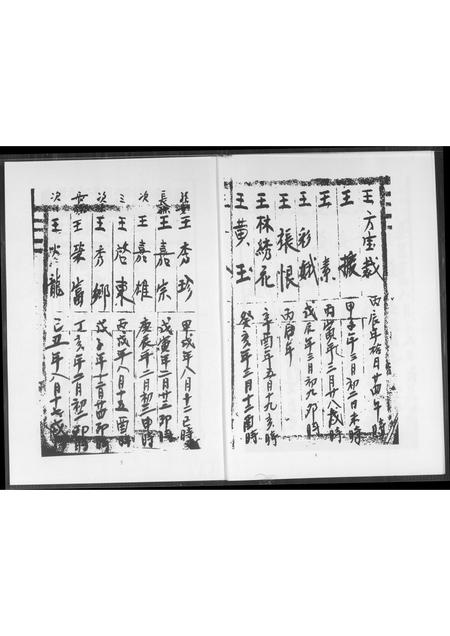 王方空裁 丙辰年拾月廿四午時
王 櫰 甲子年三月初二日未時
王 素 丙寅年三月廿八戌時
王彩娥 戊辰年三月初九卯時
王張恨 丙 年
王林綉花 辛酉年五月十九亥時
王黃玉 癸亥年三月十二酉時
王秀珍 甲戌年八月十二巳時
長 王嘉宗 戊寅年二月廿二卯時
次 王嘉雄 庚辰年二月初三申時
三 王啓東 丙戌年八月十五酉時
次 王秀鄉 戊子年 月廿四卯時
王榮富 丁亥年二月初二卯時
次 王炎龍 己丑年八月十七戌